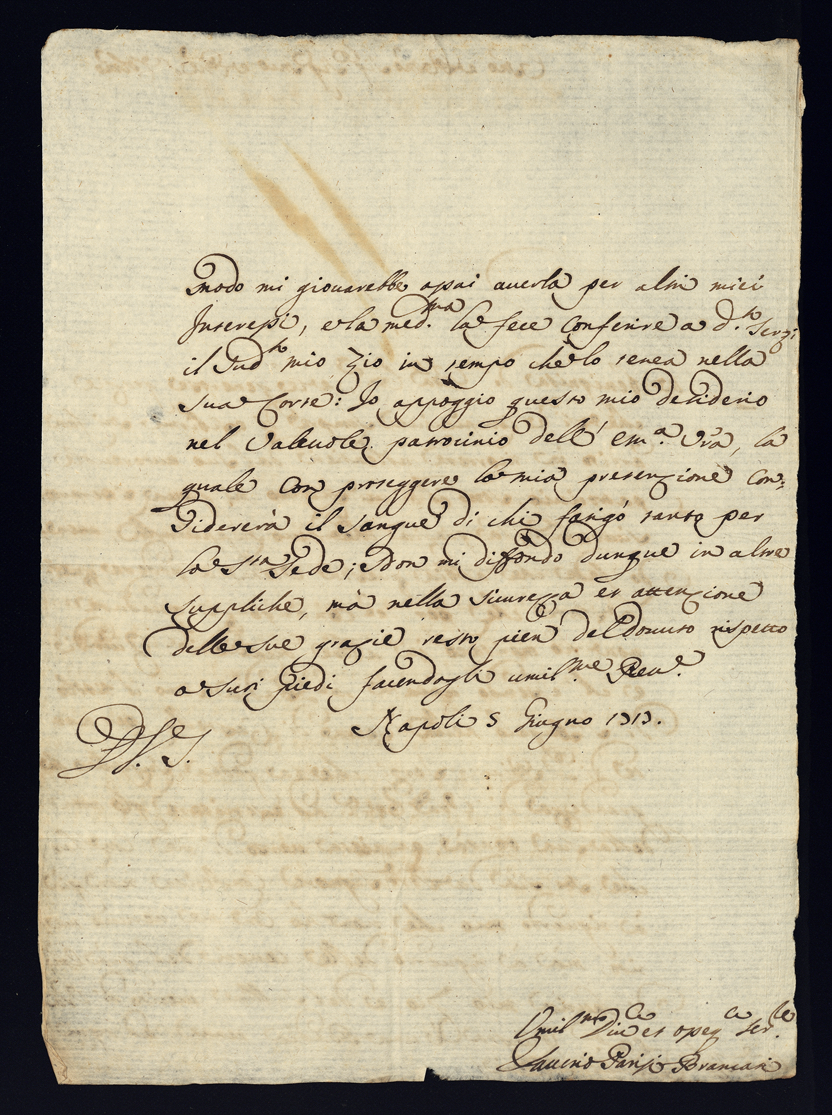 modo mi giovarebbe assai averla per altri miei
Interessi, e la med.ma la fece conferire a d.to Servi
il Sud.to mio Zio in tempo che lo tenea nella
sua Corte: Io appoggio questo mio desiderio
nel Valevole patrocinio dell' Em.a Vra, la
quale con proteggere la mia pretenzione con=
sidererà il sangue di chi fatigó tanto per
la S.ta Sede; Non mi diffondo dunque in altre
suppliche, mà nella sicurezza et attenzione
delle sue grazie resto pien del dovuto rispetto
a suoi piedi facendogli umil.me River.
Napoli 5 Giugno 1713.
Umil.mo Div. et
Saverio Parisi Brancari